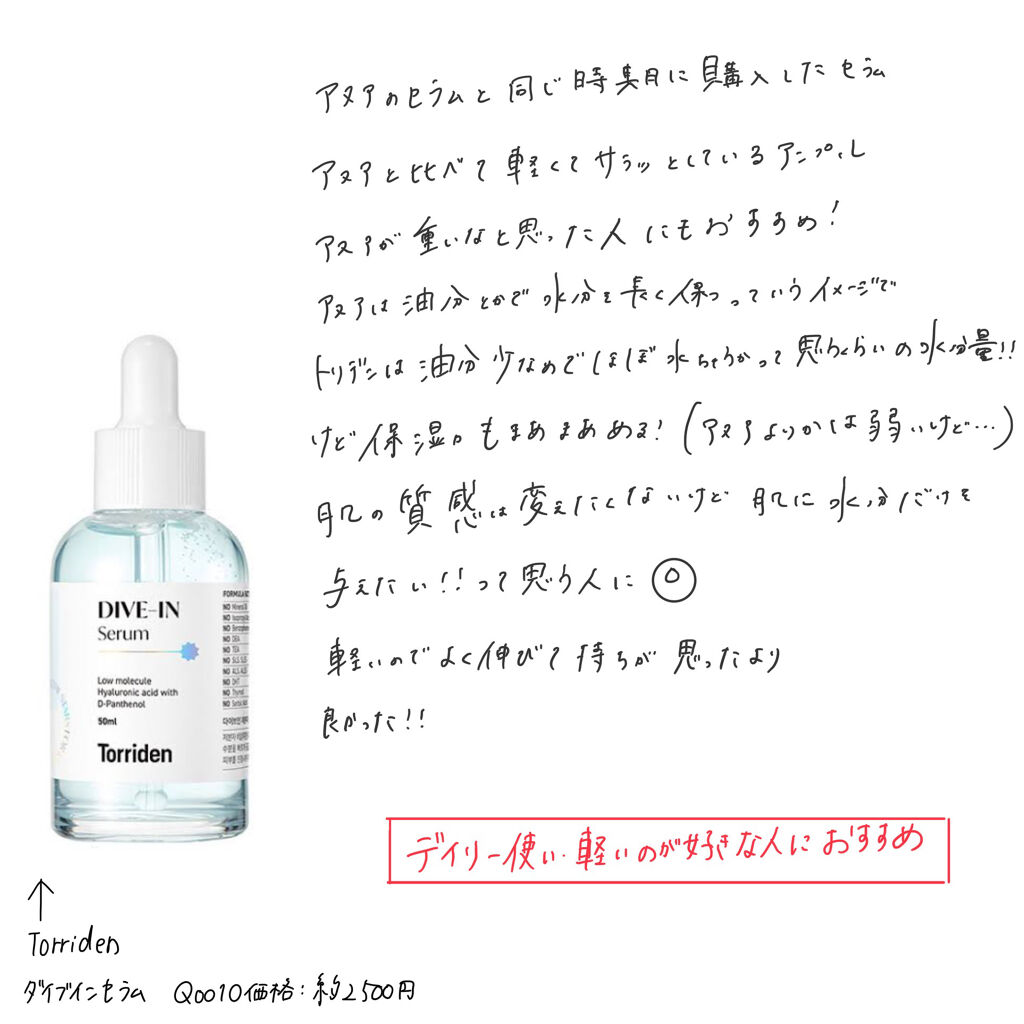 アヌアのセラムと同じ時期に購入したセラム
アヌアと比べて軽くてサラッとしているアンプル
アヌアが重いなと思った人にもおすすめ!
アヌアは油分とかで水分を長く保つっていうイメージで
トリデンは油分少なめでほぼ水ちゃうかって思うくらいの水分量!!
けど保湿力もまあまあある!(アヌアよりかは弱いけど…)
肌の質感は変えたくないけど肌に水分だけを
与えたい!!って思う人に◎
軽いのでよく伸びて持ちが思ったより
良かった!!
デイリー使い・軽いのが好きな人におすすめ
DIVE-IN
Serum
Low molecule
Hyaluronic acid with
D-Panthenol
50ml
Torriden
FORMULA NO
NO Mineral Oil
NO DEA
NO TEA
NO SLS, SLES
NO Thymol
↑
Torriden
ダイブインセラム Qoo10価格:約2500円